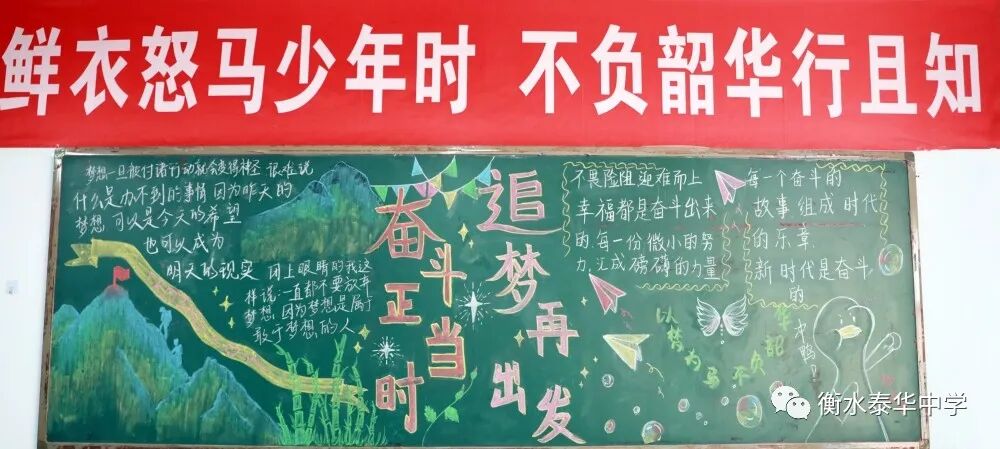 鲜衣怒马少年时 不负韶华行且知
梦想一旦被付诸行动就会变得神圣 很难说
什么是办不到的事情 因为昨天的
梦想 可以是今天的希望
也可以成为
明天的现实
闭上眼睛的我这
样说:一直都不要放弃
梦想 因为梦想是属于
敢于梦想的人
奋斗正当时
追梦再出发
不畏险阻 迎难而上
幸福都是奋斗出来
的.每一份微小的努
力.汇成磅礴的力量
每一个奋斗的
故事 组成时代
的乐章
新时代是奋斗
的
以梦为马 不负韶华
衡水泰华中学